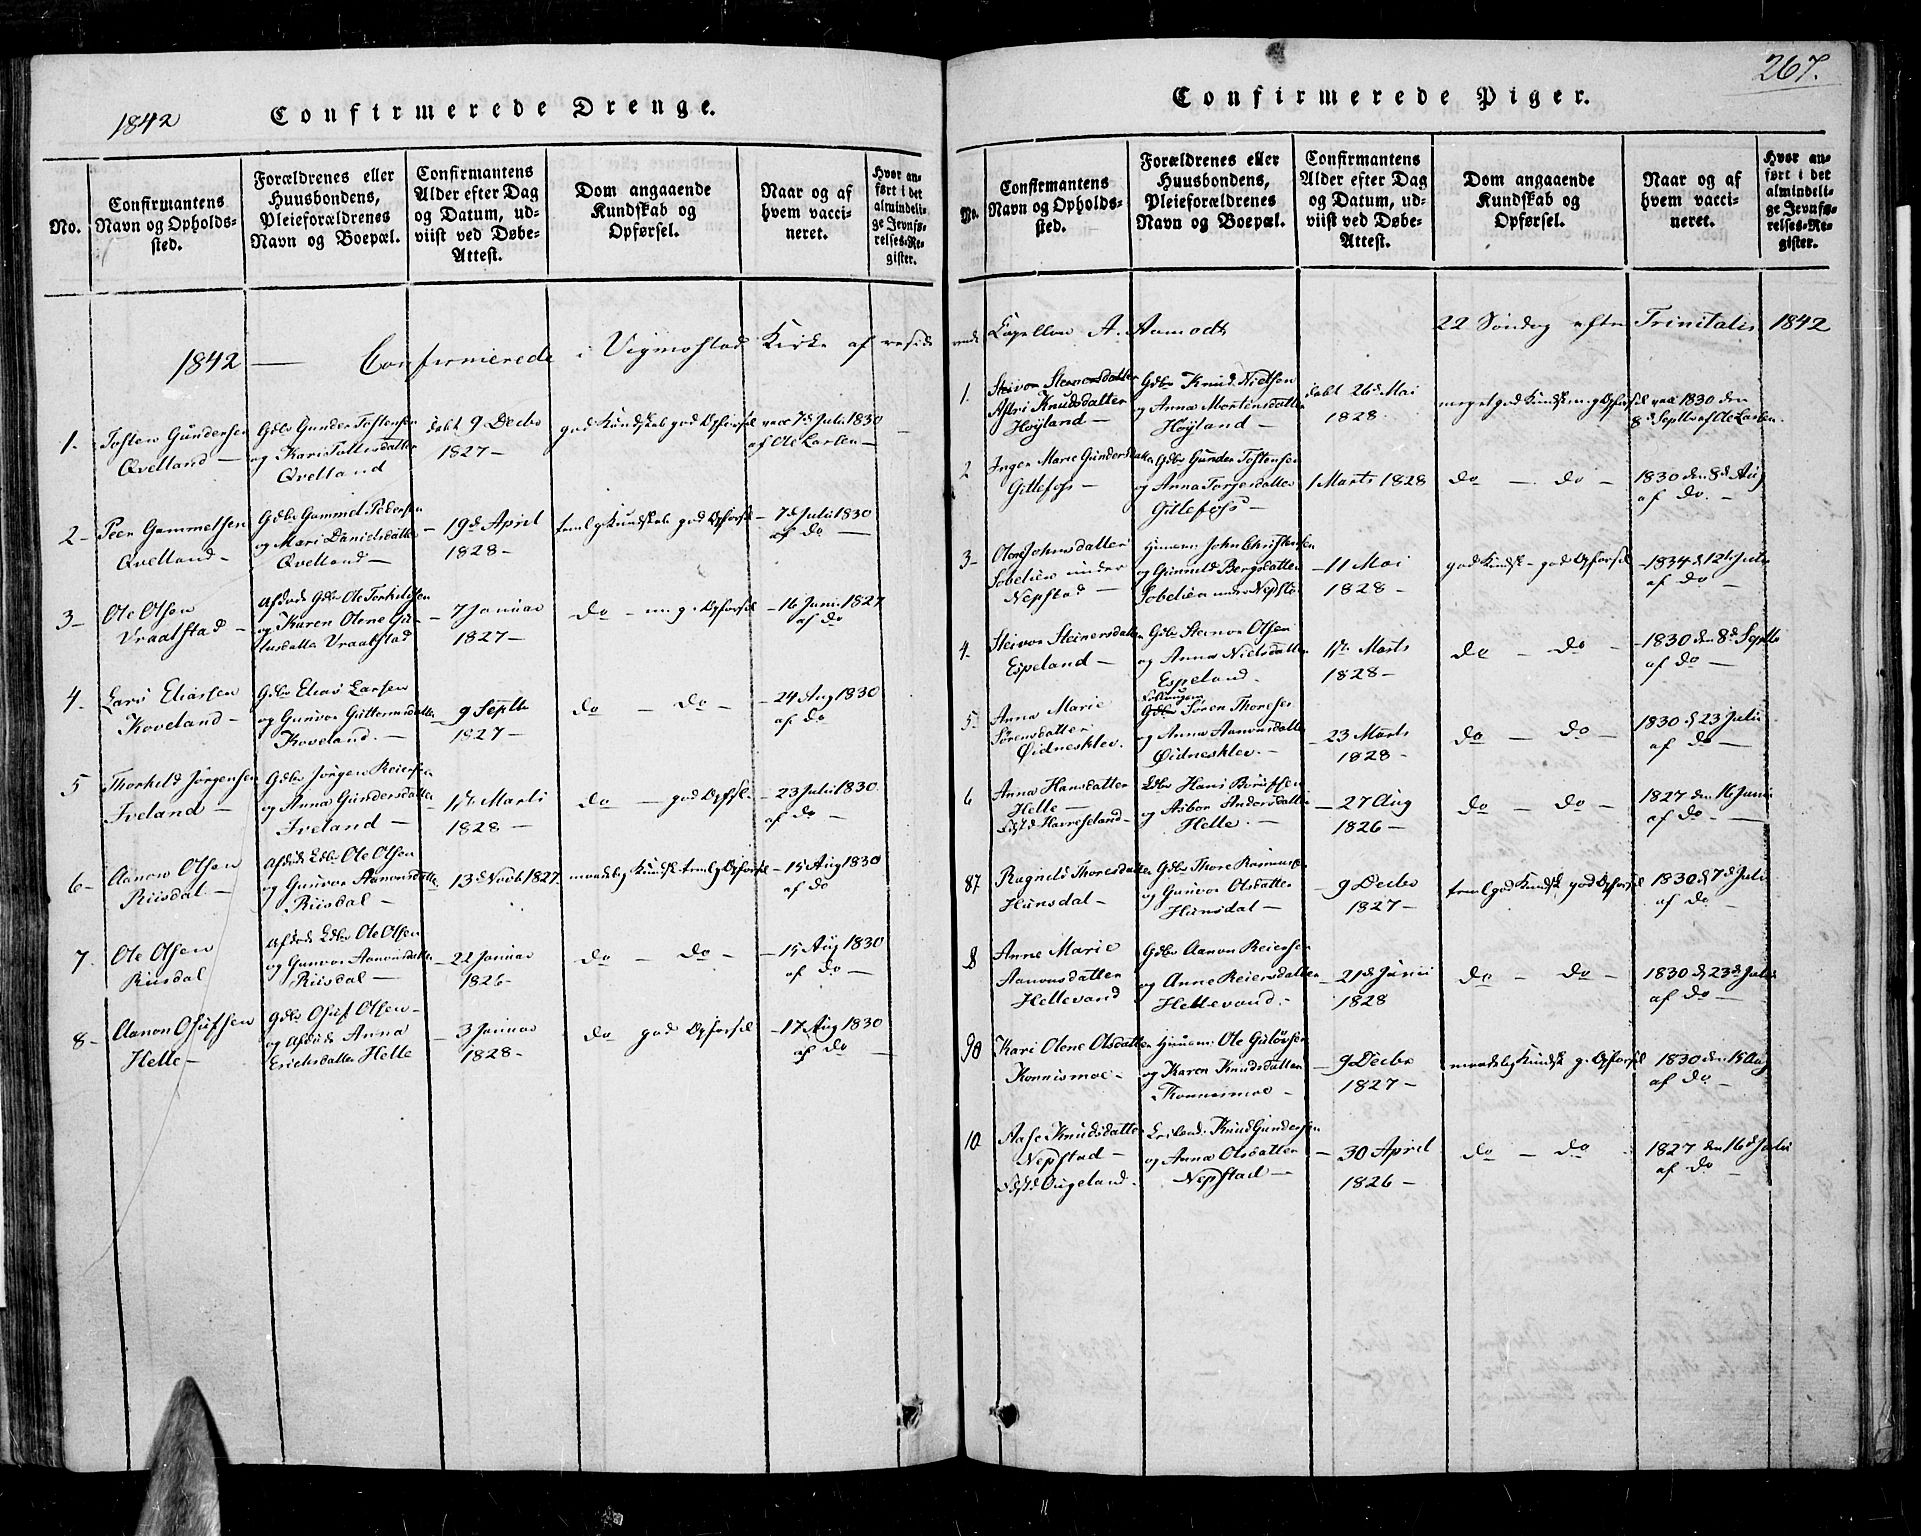 1842
Confirmerede Drenge.
No.
Confirmantens
Navn og Opholds-
sted.
Forældrenes eller
Huusbondens,
Pleieforældrenes
Navn og Boepæl.
Confirmantens
Alder efter Dag
og Datum, ud-
viist ved Døbe-
Attest.
Dom angaaende
Kundskab og
Opførsel.
Naar og af
hvem vacci-
neret.
Hvor an-
ført i det
almindeli-
ge Jevnfø-
relses-Re-
gister.
1842 — Confirmerede i Vigmostad Kirke af reside
1.
Tosten Gundersen
Qvelland —
Gdbr Gunder Tostensen
og Kari Tollisdatter
Qvelland
døbt 9 Decbr
1827 —
god Kundskab god Opførsel
vacc 7d Juli 1830
af Ole Larsen —
2 -
Peer Gammelsen
Qvelland —
Gdbr Gammel Pedersen
og Mari Danielsdatter
Qvelland —
— 19d April
1828 —
temlg Kundskab god Opførsel
— 7d Juli 1830
af do —
3 -
Ole Olsen
Vraalstad —
Afdøde Gdbr Ole Terkelsen
og Karen Olene Gu-
lusdatter Vraalstad
— 7 Januar
1827 —
do — m. g. Opførsel
— 16 Juni 1827
af do
4 -
Lars Eliassen
Koveland —
Gdbr Elias Larsen
og Gunvor Guttormsdatter
Koveland. —
— 9 Septbr
1827 —
do — do —
— 24 Aug 1830
af do
5
Thorkild Jørgensen
Iveland —
Gdbr Jørgen Reiersen
og Anna Gundersdatter
Iveland —
— 17de Marts
1828 —
do — god Opførsl.
— 23 Juli 1830
af do —
6 -
Aanon Olsen
Riisdal —
Afdøde Gdbr Ole Olsen
og Gunvor Aanonsdatter
Riisdal —
— 13d Novb. 1827.
maadelig Kundsk. temlg Opførsel
— 15 Aug 1830
af do
7 -
Ole Olsen
Riisdal
Afdøde Gdbr Ole Olsen
og Gunvor Aanonsdatter
Riisdal —
— 22 Januar
1826 —
do — do —
— 15 Aug 1830
af do —
8 -
Aanon Osufsen
Helle —
Gdbr Osuf Olsen —
og Afdøde Anna
Erichsdatter Helle
— 3 Januar
1828 —
do god Opførsel
— 17 Aug 1830
af do —
267.
Confirmerede Piger.
No.
Confirmantens
Navn og Opholds-
sted.
Forældrenes eller
Huusbondens,
Pleieforældrenes
Navn og Boepæl.
Confirmantens
Alder efter Dag
og Datum, ud-
viist ved Døbe-
Attest.
Dom angaaende
Kundskab og
Opførsel.
Naar og af
hvem vacci-
neret.
Hvor an-
ført i det
almindeli-
ge Jevnfø-
relses-Re-
gister.
rende Capellan A. Aamodt 22 Søndag efter Trinitatis 1842
1.
Steivor Steinersdatter
Astri Knudsdatter
Høyland —
Gdbr Knud Nielsen
og Anna Mortensdatter
Høyland —
døbt 26d Mai
1828 —
meget god Kundsk m. g. Opførsel
vacc 1830 den
8d Septbr af Ole Larsen.
2
Inger Marie Gundersdatter
Gitlefos —
Gdbr Gunder Tostensen
og Anna Torjersdatter
Gitlefos —
1 Marts 1828
do — do —
1830 den 8d Aug
af do. —
3 -
Olene Johnsdatter
Sobelien under
Nepstad —
Huusm. John Christensen
og Gunnild Bergsdatter
Sobelien under Nepstad
— 11 Mai
1828 —
god Kundsk — god Opførsel
— 1834 d 12t Juli
af do —
4.
Steivor Steinersdatter
Espeland —
Gdbr Steinor Olsen
og Anna Nielsdatter
Espeland.
17de Marts
1828 —
do — do —
— 1830 den 8d Septbr
af do —
5.
Anna Marie
Sørensdatter
Øidnesklev.
Gdbr Søren Thoresen
og Anna Aanonsdatter
Øidnesklev. —
— 23 Marts
1828 —
do — do —
1830 d 23 Julii
af do —
6
Anna Hansdatter
Helle —
Gdbr Hans Berulfsen
og Asbor Andersdatter
Helle. —
— 27 Aug
1826 —
do — do —
1827 den 16 Juni
af do. —
87.
Ragnild Thoresdatter
Hunsdal —
Gdbr Thore Rasmussen
og Gunvor Olsdatter
Hunsdal —
— 9 Decbr
1827 —
teml god Kundsk god Opførsel
1830 d 7d Juli
af do. —
8
Anne Marie
Aanonsdatter
Hellevand
Gdbr Aanon Reiersen
og Anne Reiersdatter
Hellevand. —
— 21d Junii
1828
do — do —
1830 d 23d Juli
af do —
90
Kari Olene Olsdatter
Konnismoe —
Huusm. Ole Guløvsen
og Karen Knudsdatter
Konnismoe —
— 9 Decbr
1827 —
maadelig Kundsk g. Opførsel
1830 den 15 Aug
af do —
10
Aase Knudsdatter
Nepstad —
Knud Gundersen
og Anna Olsdatter
Nepstad —
— 30 April
1826 —
do — do —
1827 den 16d Juli
af do —